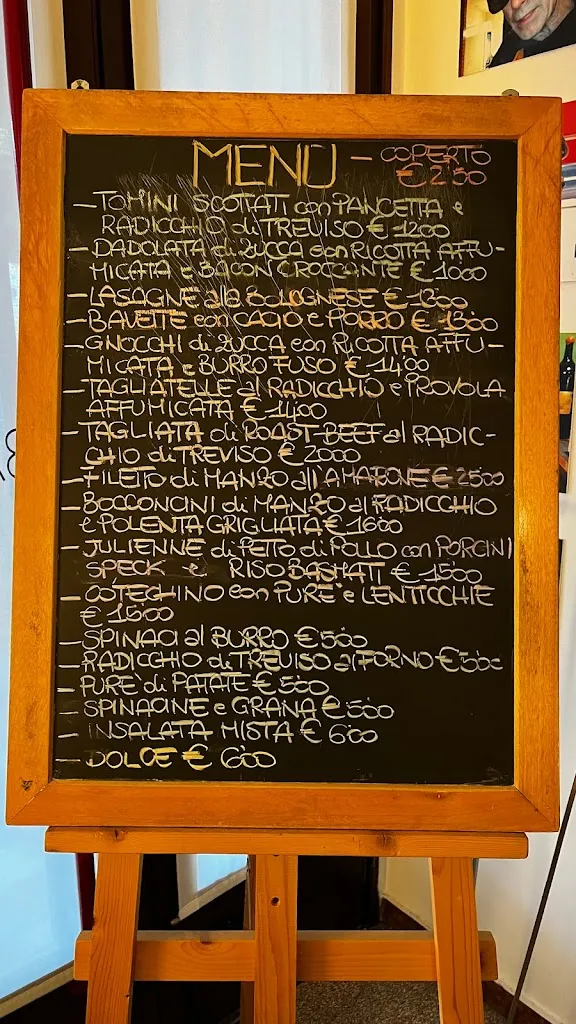 MENÙ - COPERTO
€ 2,50
- TOMINI SCOTTATI con PANCETTA e
RADICCHIO di TREVISO € 12,00
- DADOLATA di ZUCCA con RICOTTA AFFU-
MICATA e BACON CROCCANTE € 10,00
- LASAGNE alla BOLOGNESE € 13,00
- BAVETTE con CACIO e PORRO € 13,00
- GNOCCHI di ZUCCA con RICOTTA AFFU-
MICATA e BURRO FUSO € 14,00
- TAGLIATELLE al RADICCHIO e PROVOLA
AFFUMICATA € 14,00
- TAGLIATA di ROAST-BEEF al RADIC-
CHIO di TREVISO € 20,00
- FILETTO di MANZO all'AMARONE € 25,00
- BOCCONCINI di MANZO al RADICCHIO
e POLENTA GRIGLIATA € 16,00
- JULIENNE di PETTO di POLLO con PORCINI
SPECK e RISO BASMATI € 15,00
- COTEGHINO con PURE' e LENTICCHIE
€ 15,00
- SPINACI al BURRO € 5,00
- RADICCHIO di TREVISO al FORNO € 5,00
- PURE' di PATATE € 5,00
- SPINACINE e GRANA € 5,00
- INSALATA MISTA € 6,00
- DOLCE € 6,00